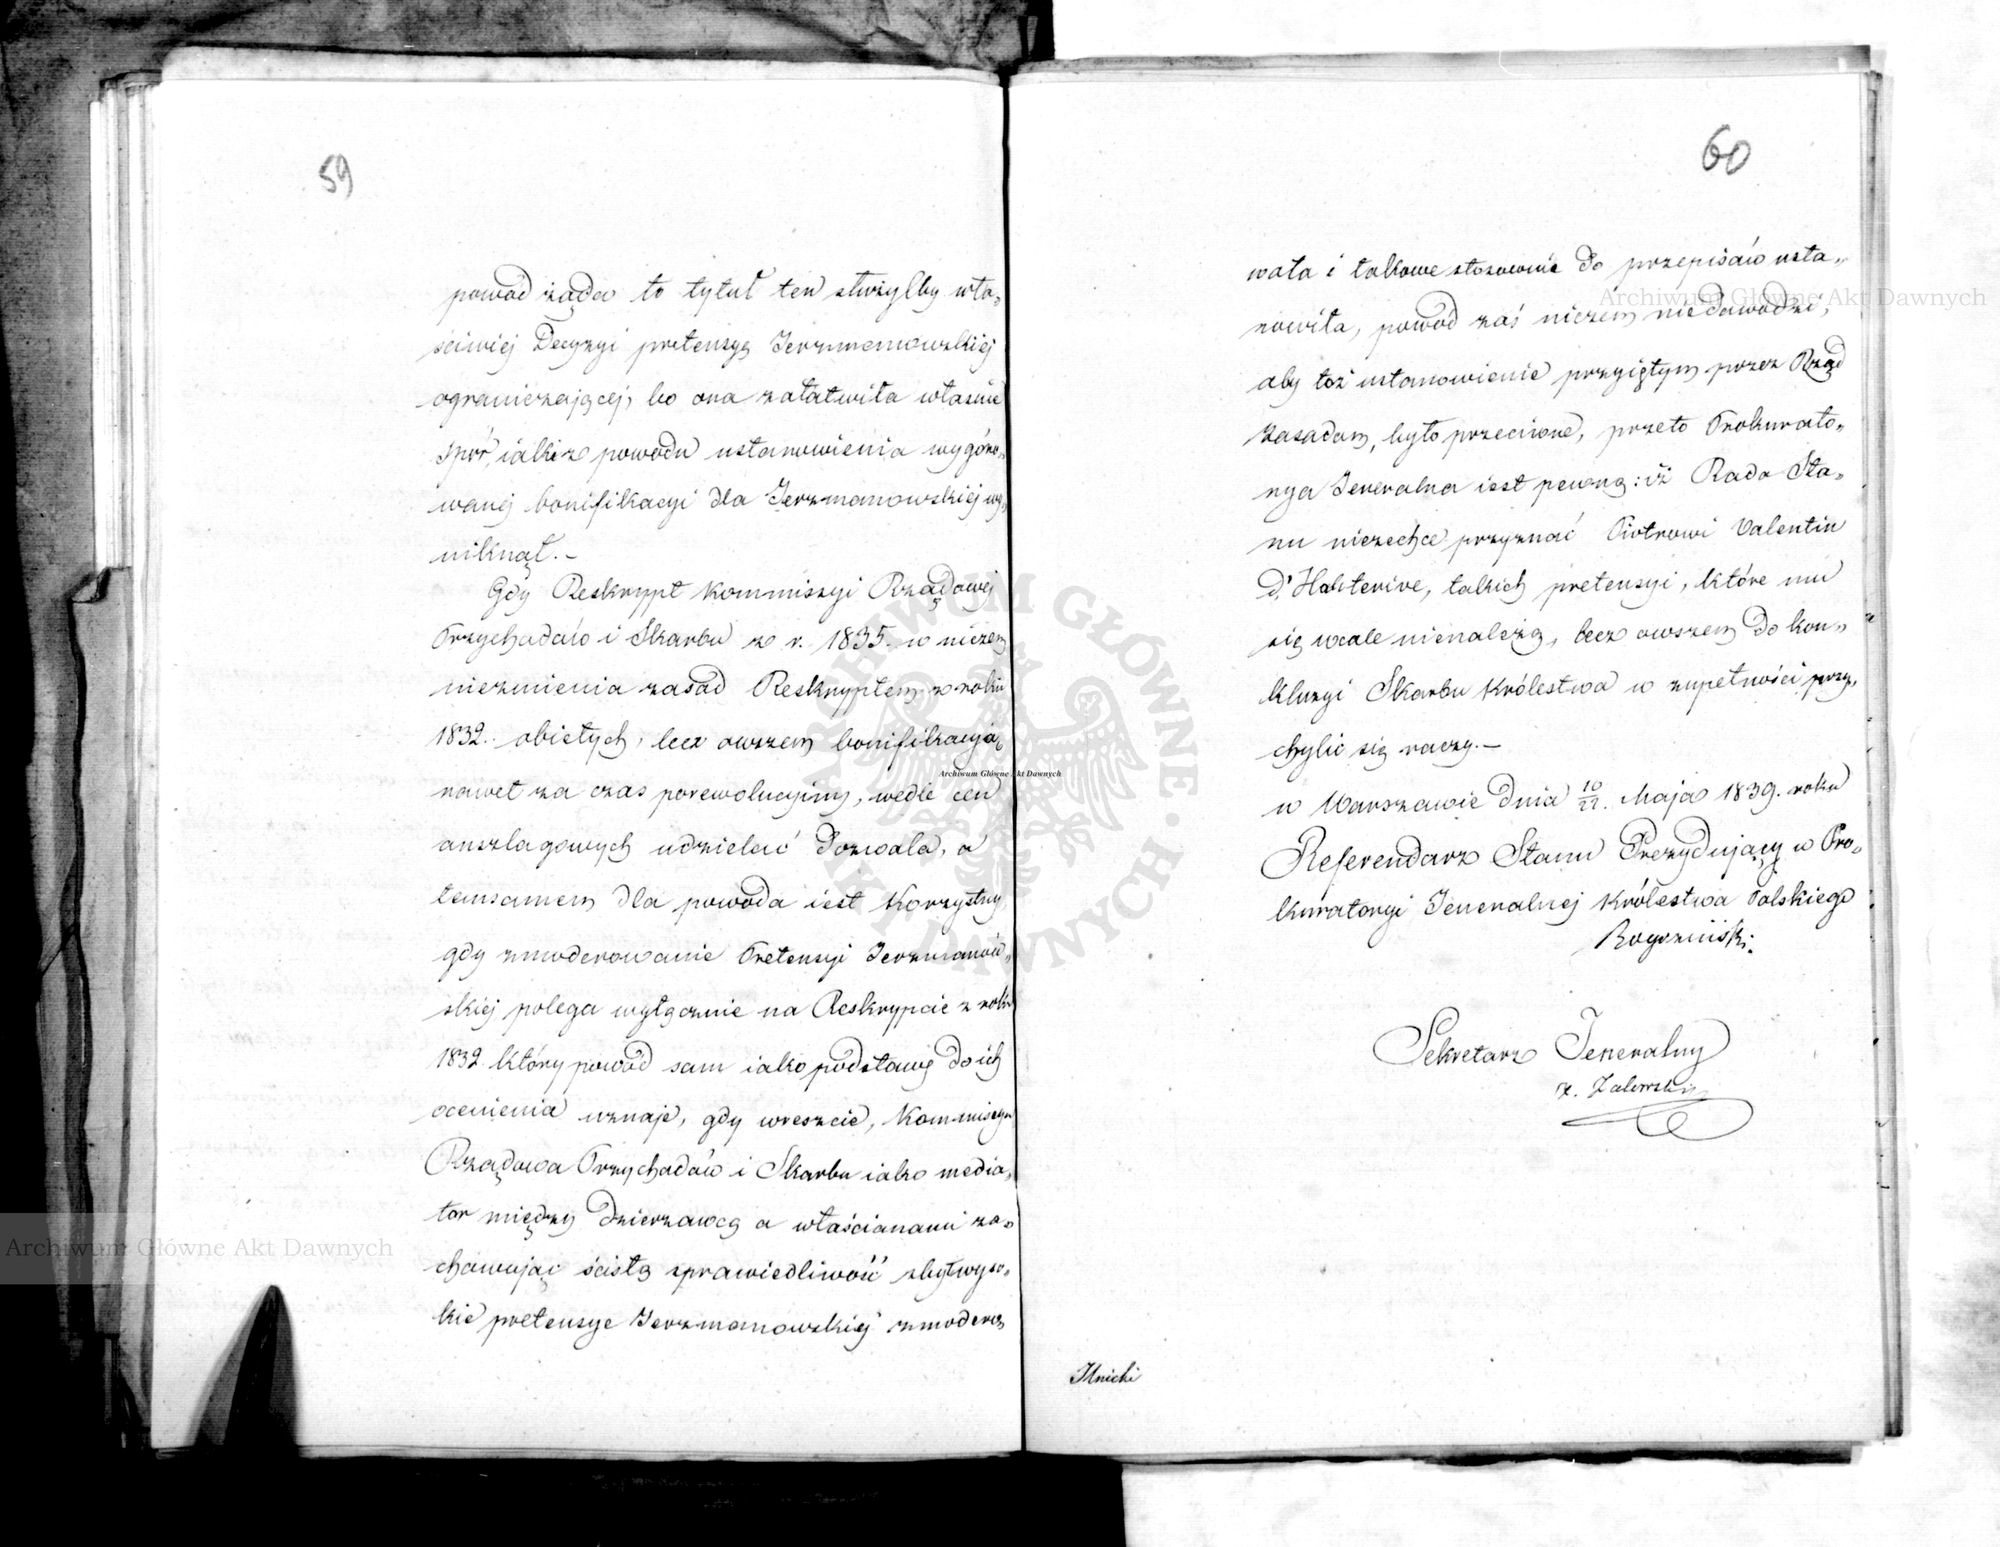 59
powód żąda to tytuł ten służyłby wła„
ściwiej Decyzyi pretensyą Jerzmanowskiéj
ograniczającej, bo ona załatwiła własnie
spór, iaki z powodu ustanowienia wygóro„
wanej bonifikacyi dla Jerzmanowskiéj wy„
niknął.–
Gdy Reskrypt Kommissyi Rządowej
Przychodów i Skarbu z r. 1835. w niczem
niezmienia zasad Reskryptem z roku
1832. obiętych, lecz owszem bonifikacyją
nawet za czas porewolucyjny, wedle cen
anszlagowych udzielać dozwala, a
temsamem dla powoda iest korzystny
gdy zmoderowanie Pretensyi Jerzmanow„
skiéj polega wyłącznie na Reskrypcie z roku
1832 który powód sam iako podstawę do ich
ocenienia uznaje, gdy wreszcie, Kommissya
Rządowa Przychodów i Skarbu iako media„
tor między Dzierzawcą a włościanami za„
chowując ścisłą sprawiedliwość zbyt wyso„
kie pretensye Jerzmanowskiéj zmodero„
60
wała i takowe stosownie do przepisów usta„
nowiła, powód zaś niczem niedowodzi,
aby toż ustanowienie przyiętym przez Rząd
zasadom, było przeciwne, przeto Prokurato„
rya Jeneralna iest pewną: iż Rada Sta„
nu niezechce przyznać Piotrowi Valentin
d'Hauterive, takich pretensyi, które mu
się wcale nienależą, lecz owszem do kon„
kluzyi Skarbu Królestwa w zupełności przy„
chylić się raczy.–
w Warszawie dnia 10/22. Maja 1839. roku
Referendarz Stanu Prezydujący w Pro„
kuratoryi Jeneralnej Królestwa Polskiego
Rogoziński
Sekretarz Jeneralny
Zalewski
Ilnicki
Archiwum Główne Akt Dawnych
Archiwum Główne Akt Dawnych
Archiwum Główne Akt Dawnych
ARCHIWUM GŁÓWNE AKT DAWNYCH